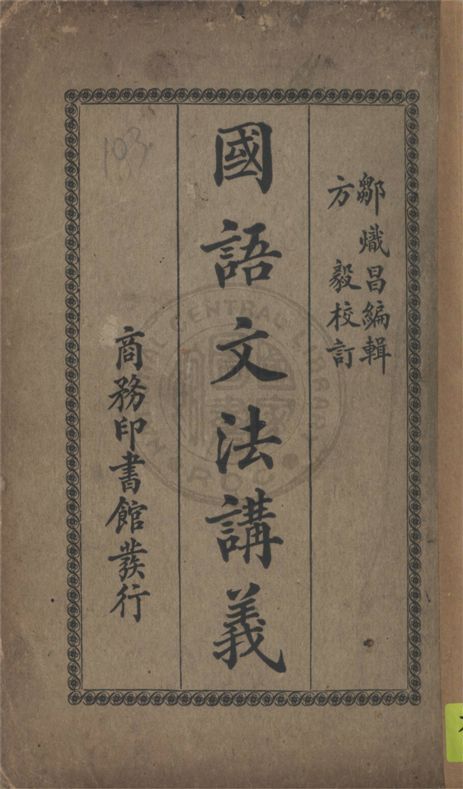 鄒熾昌編輯
方毅校訂
國語文法講義
商務印書館發行
103